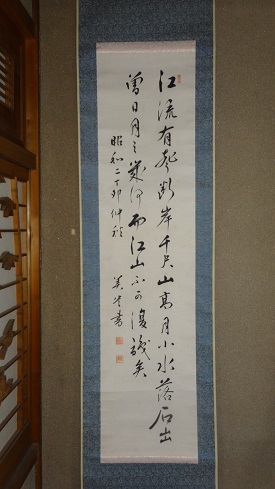 江流有聲断岸千尺山高月小水落石出
曾日月之幾何而江山不可復識矣
昭和二丁卯仲秋
書